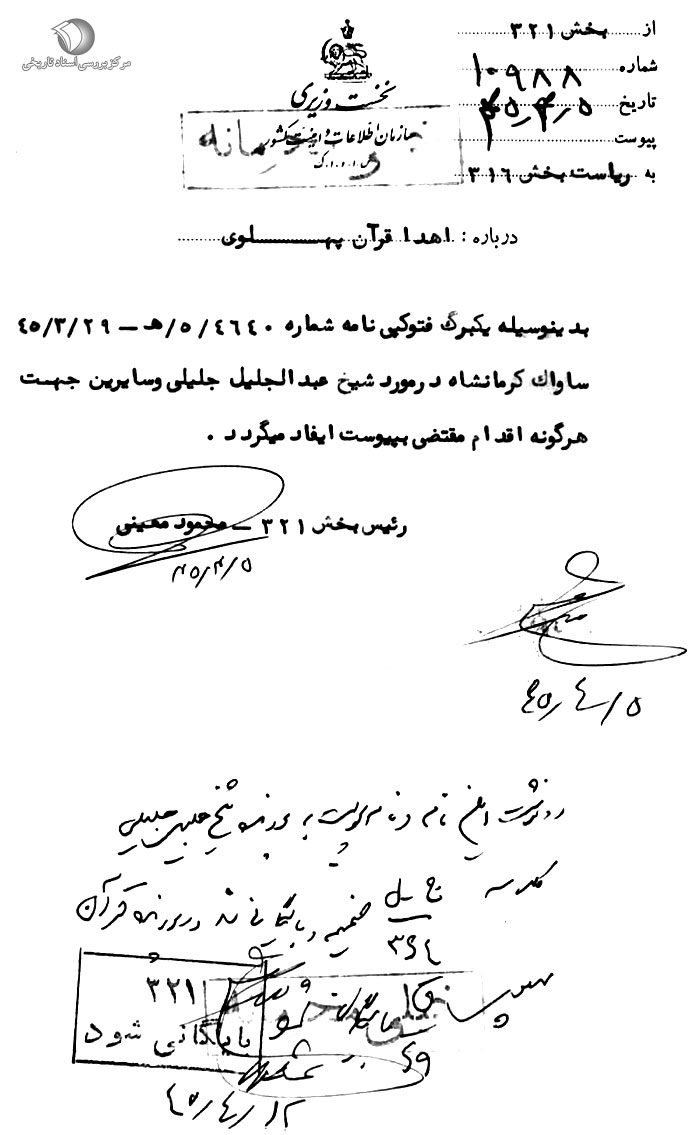 مرکز بررسی اسناد تاریخی
از بخش ۳۲۱
شماره ۱۰۹۸۸
تاریخ ۴۵/۴/۵
پیوست
به ریاست بخش ۳۱۶
نخست وزیری
سازمان اطلاعات و امنیت کشور
س.ا.و.ا.ک
محرمانه
درباره : اهدا قرآن پهلوی
بدینوسیله یکبرگ فتوکپی نامه شماره ۴۶۴۰ /۵/ هـ – ۴۵/۳/۲۹
ساواك کرمانشاه درمورد شیخ عبدالجلیل جلیلی وسایرین جهت
هرگونه اقدام مقتضی بپیوست ایفاد میگردد .
رئیس بخش ۳۲۱ – محمود معینی
۴۵/۴/۵
۴۵/۴/۵
رونوشت این نامه و نامه پیوست به پرونده شیخ جلیلی
کلاسه
ضمیمه و بایگانی شد در پرونده قرآن
۳۲۱
بایگانی شود
۴۵/۴/۱۲